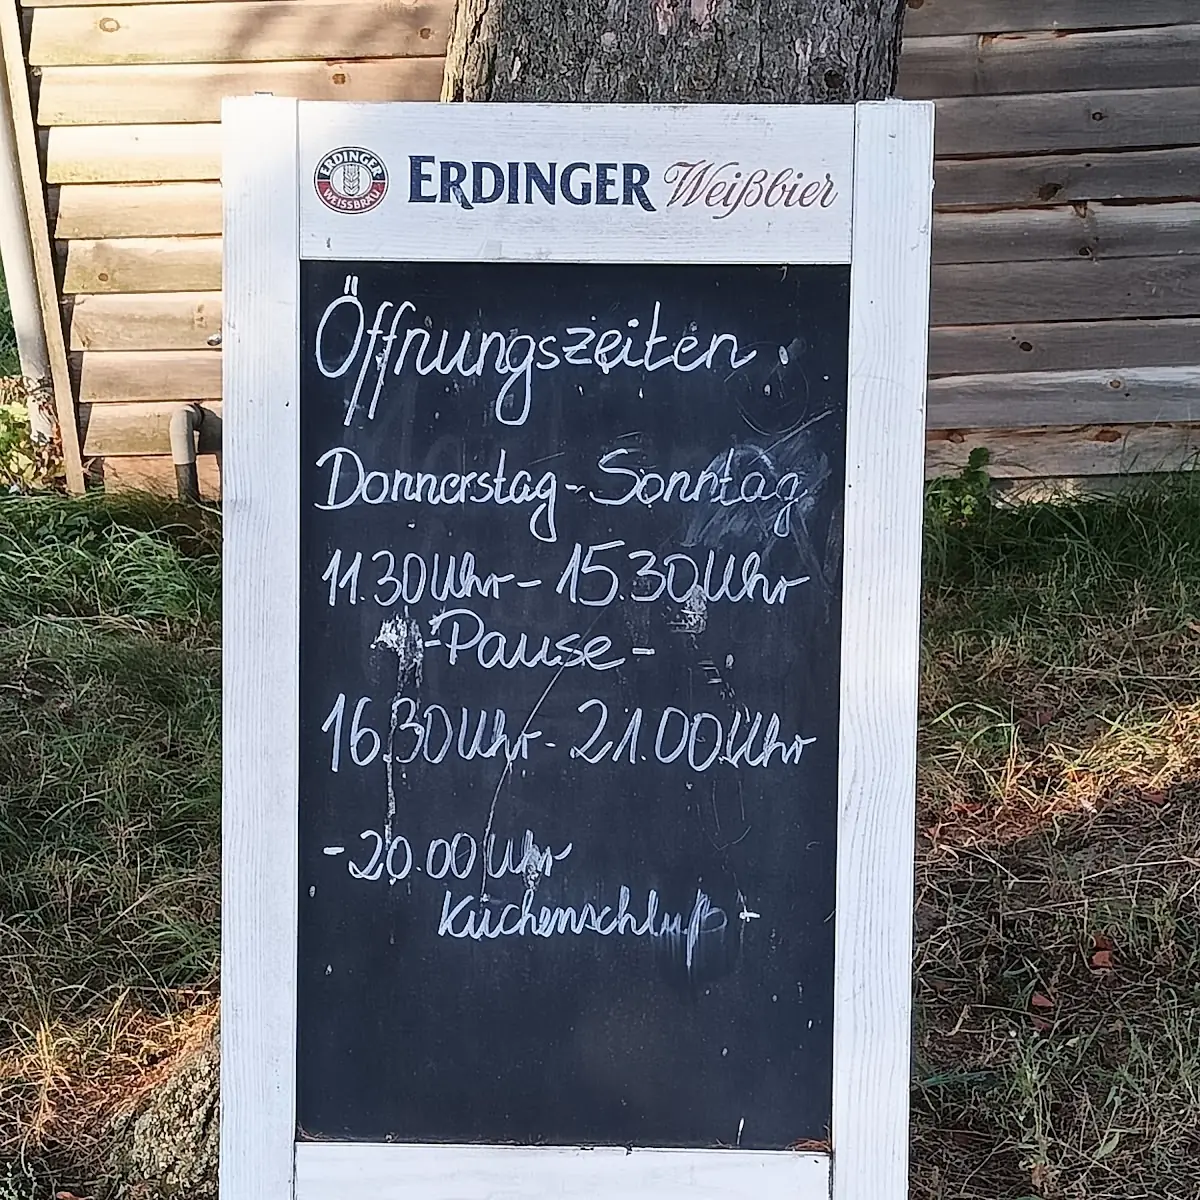 ERDINGER WEISSBRÄU
ERDINGER Weißbier
Öffnungszeiten
Donnerstag - Sonntag
11.30 Uhr - 15.30 Uhr
- Pause -
16.30 Uhr - 21.00 Uhr
- 20.00 Uhr
Küchenschluß -